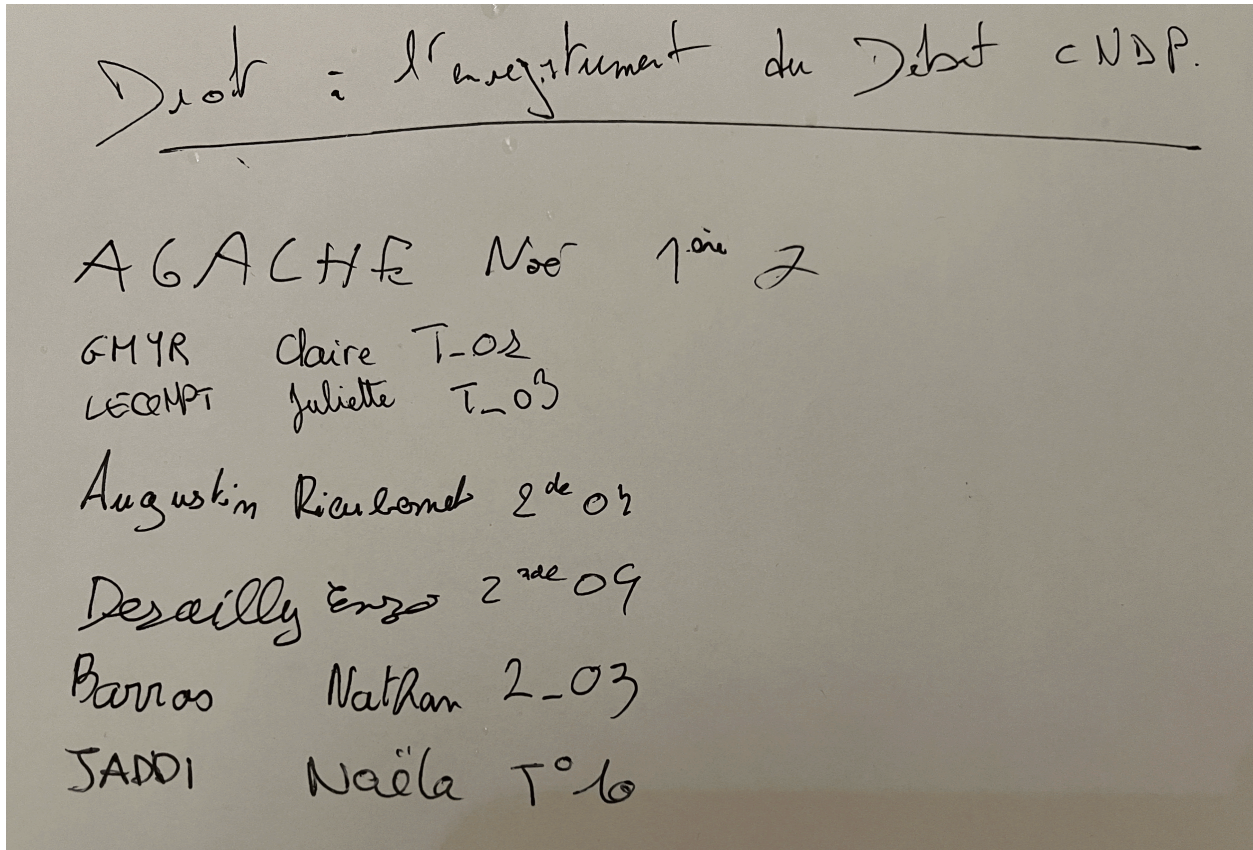 Droit à l'enregistrement du Débat CNDP.
AGACHE Noé 1ère 2
GMYR Claire T_02
LECOMPT Juliette T_03
Augustin 2de 02
Desailly Enzo 2nde 09
Barros Nathan 2_03
JADDI Naëla T° 10